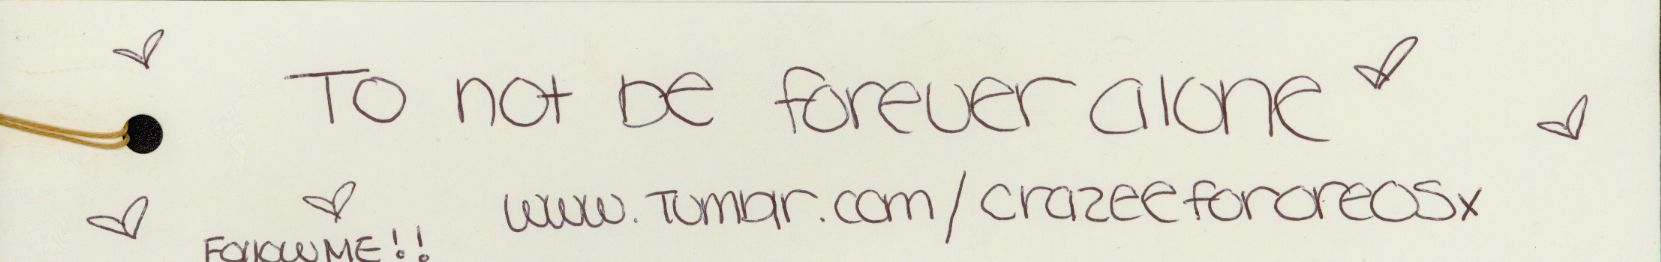 To not be forever alone
www.Tumblr.com/crazeefororeosx
Follow ME!!